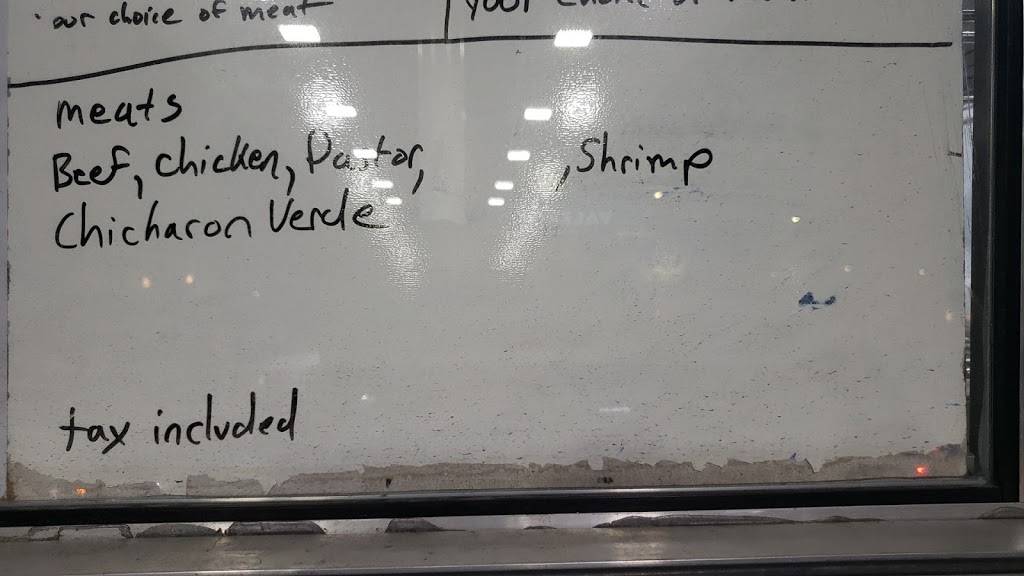 our choice of meat
your choice of
meats
Beef, Chicken, Pastor, , Shrimp
Chicharon Verde
tax included